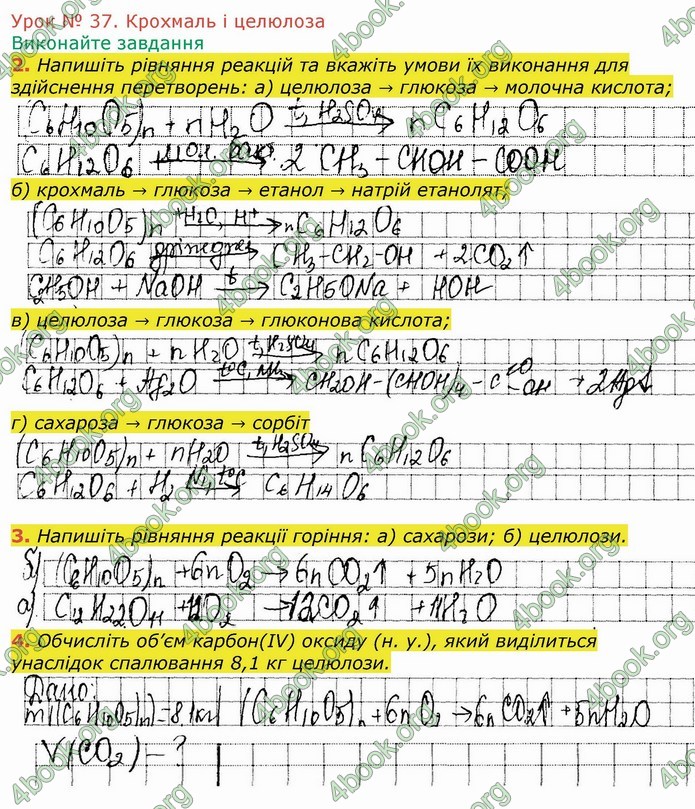 Урок № 37. Крохмаль і целюлоза
Виконайте завдання
2. Напишіть рівняння реакцій та вкажіть умови їх виконання для
здійснення перетворень: а) целюлоза → глюкоза → молочна кислота;
(C6H10O5)n + nH2O t, H2SO4 → nC6H12O6
C6H12O6 → 2 CH3 – CHOH – COOH
б) крохмаль → глюкоза → етанол → натрій етанолят;
(C6H10O5)n +H2O, H+ → nC6H12O6
C6H12O6 дріжджі → CH3-CH2-OH + 2CO2↑
C2H5OH + NaOH t → C2H5ONa + HOH
в) целюлоза → глюкоза → глюконова кислота;
(C6H10O5)n + nH2O t, H2SO4 → nC6H12O6
C6H12O6 + Ag2O t°C, NH3 → CH2OH-(CHOH)4-C=O-OH + 2Ag↓
г) сахароза → глюкоза → сорбіт
(C6H10O5)n + nH2O t, H2SO4 → nC6H12O6
C6H12O6 + H2 Ni, t°C → C6H14O6
3. Напишіть рівняння реакції горіння: а) сахарози; б) целюлози.
б) (C6H10O5)n + 6nO2 → 6nCO2↑ + 5nH2O
а) C12H22O11 + 12O2 → 12CO2↑ + 11H2O
4. Обчисліть об’єм карбон(IV) оксиду (н. у.), який виділиться
унаслідок спалювання 8,1 кг целюлози.
Дано:
m((C6H10O5)n)=8,1кг (C6H10O5)n + 6nO2 → 6nCO2↑ + 5nH2O
V(CO2) – ?
4book.org